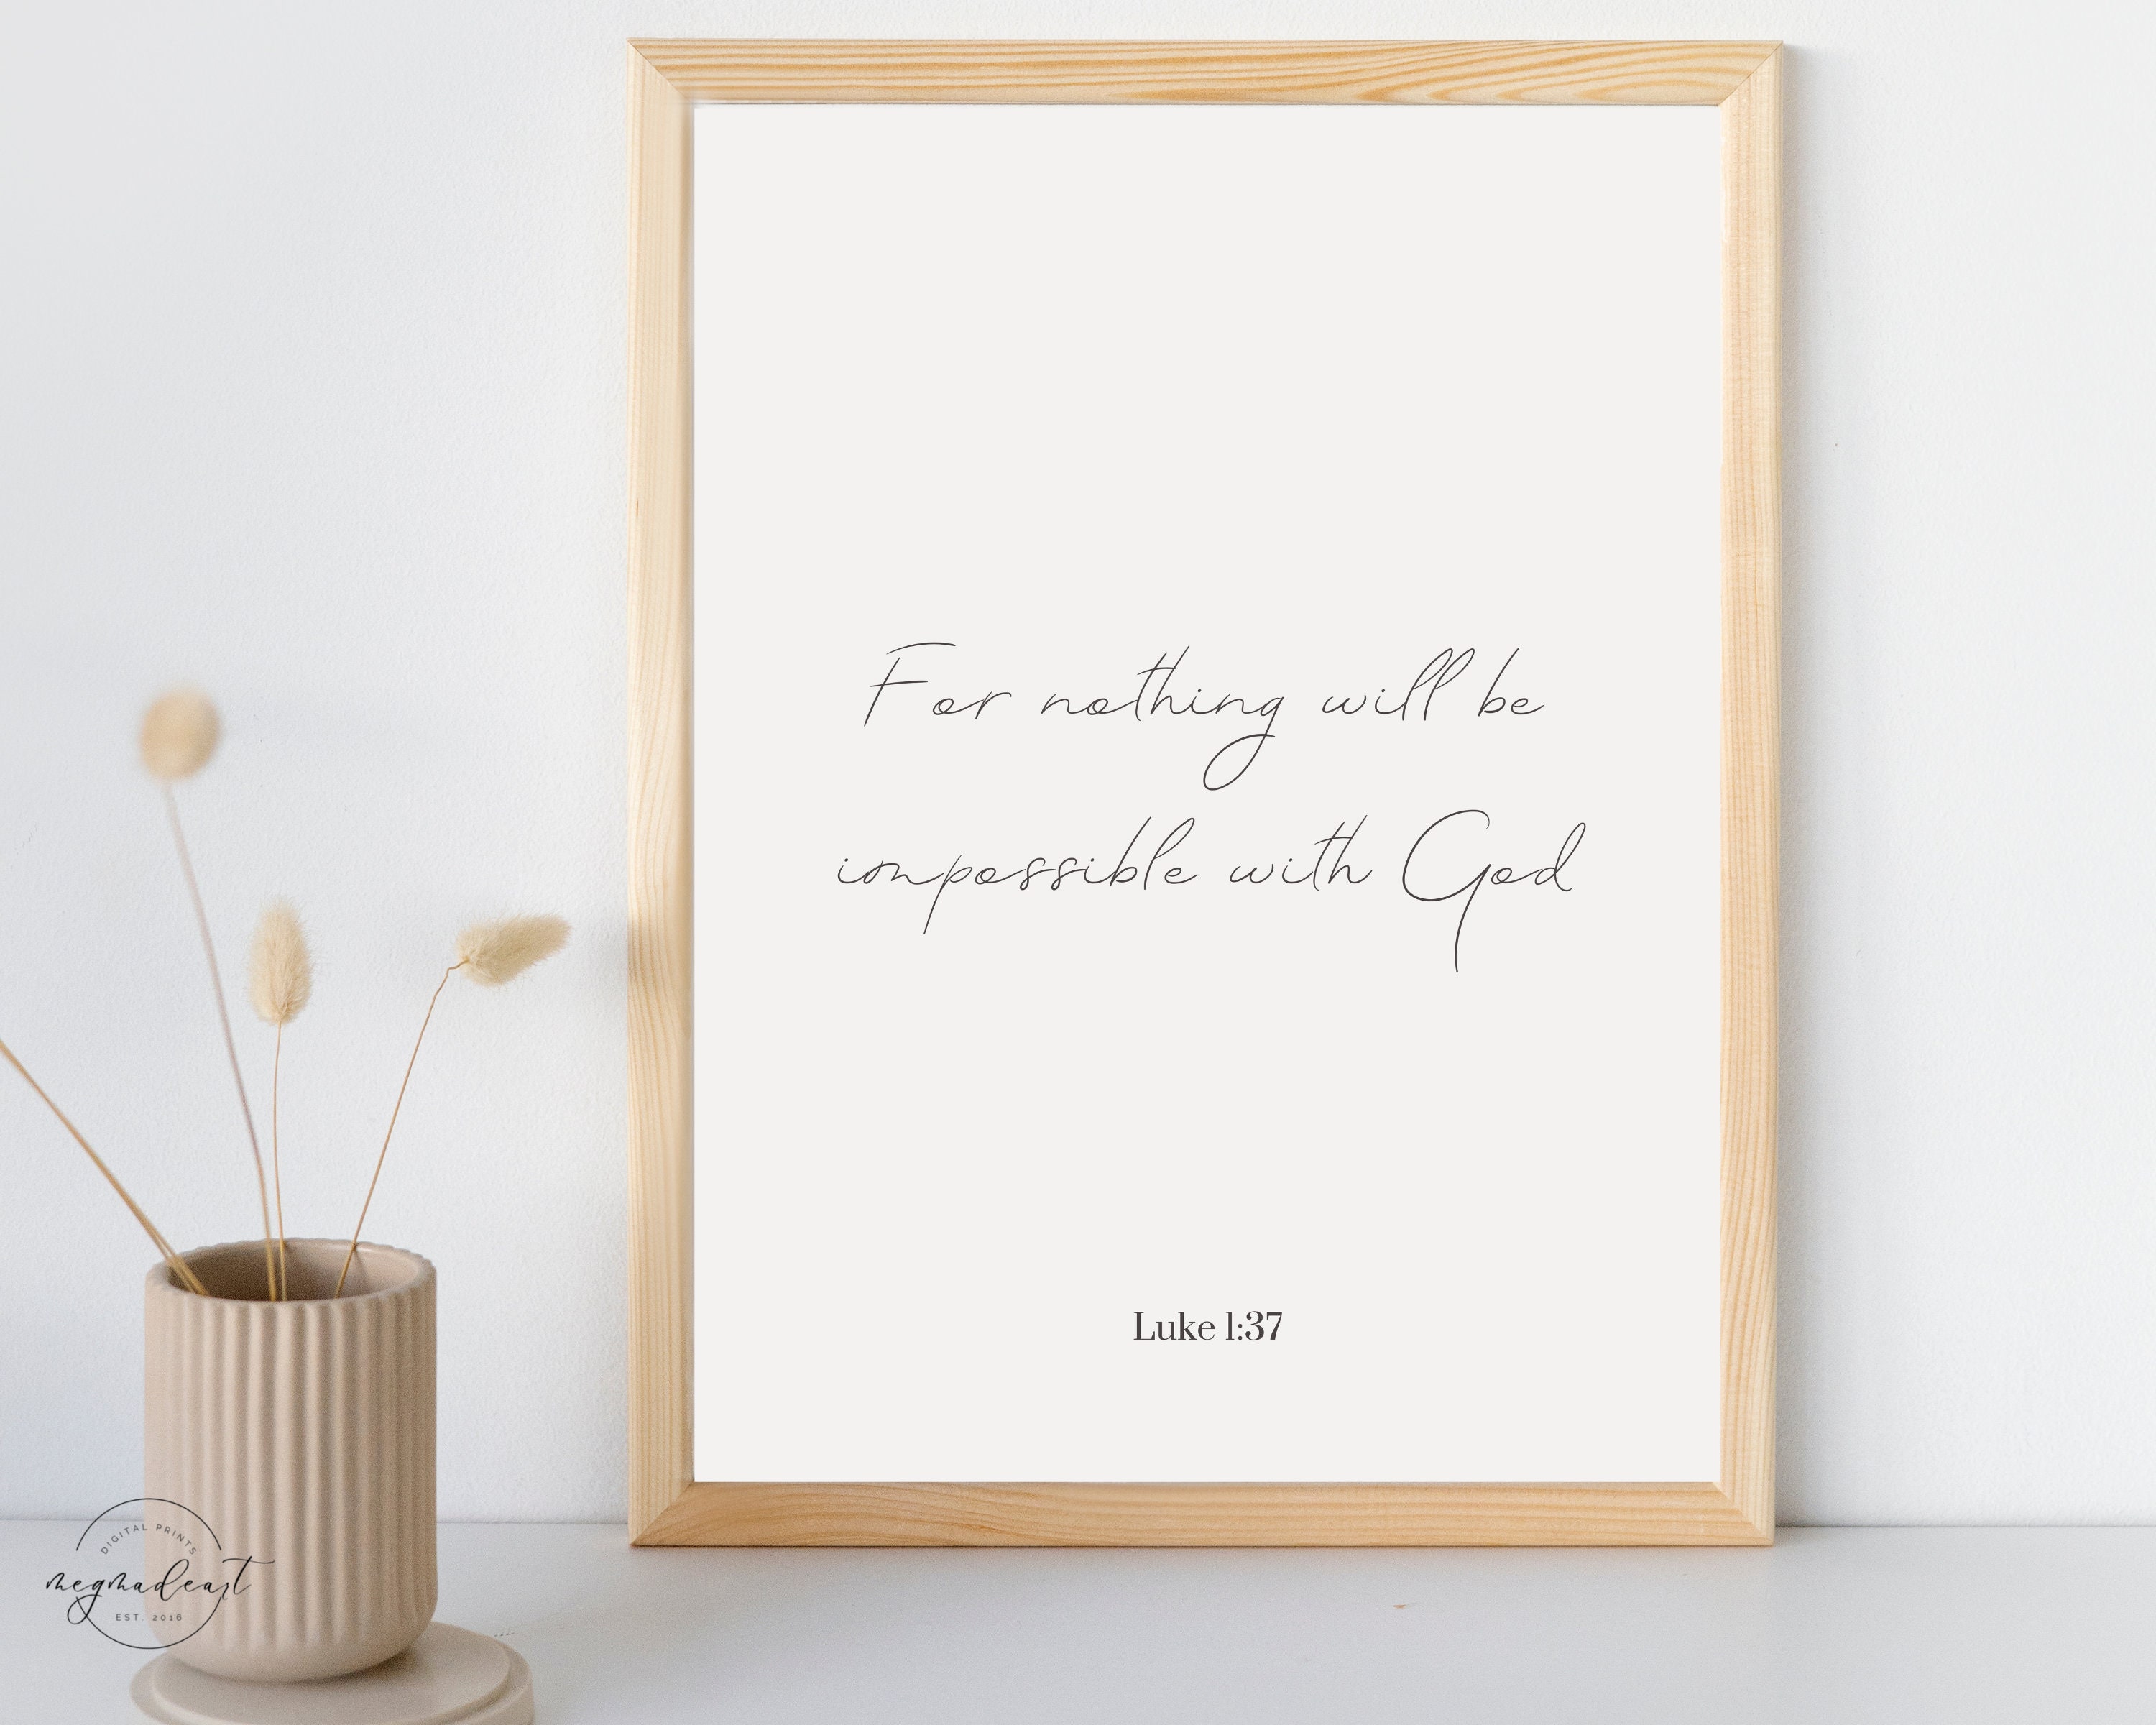 For nothing will be
impossible with God
Luke 1:37
DIGITAL PRINTS
megmadeart
EST. 2016